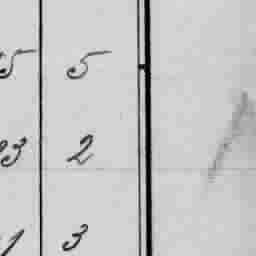 5 5
23 2
1 3